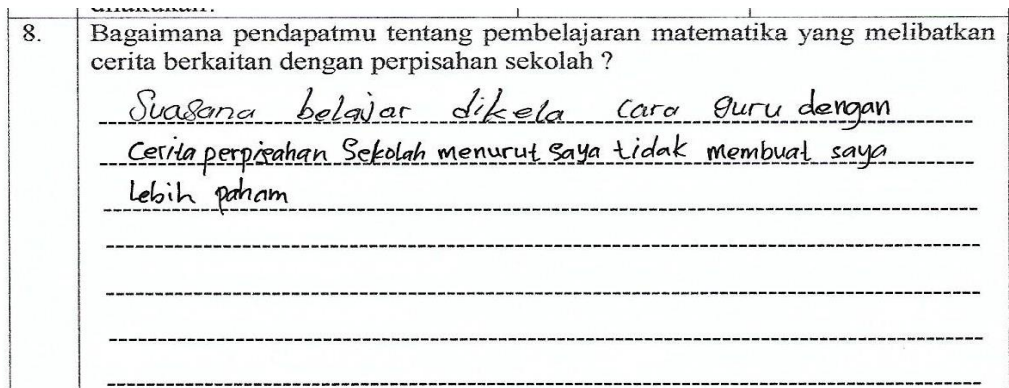 8. Bagaimana pendapatmu tentang pembelajaran matematika yang melibatkan
cerita berkaitan dengan perpisahan sekolah ?
Suasana belajar dikela cara guru dengan
Cerita perpisahan Sekolah menurut saya tidak membuat saya
Lebih paham